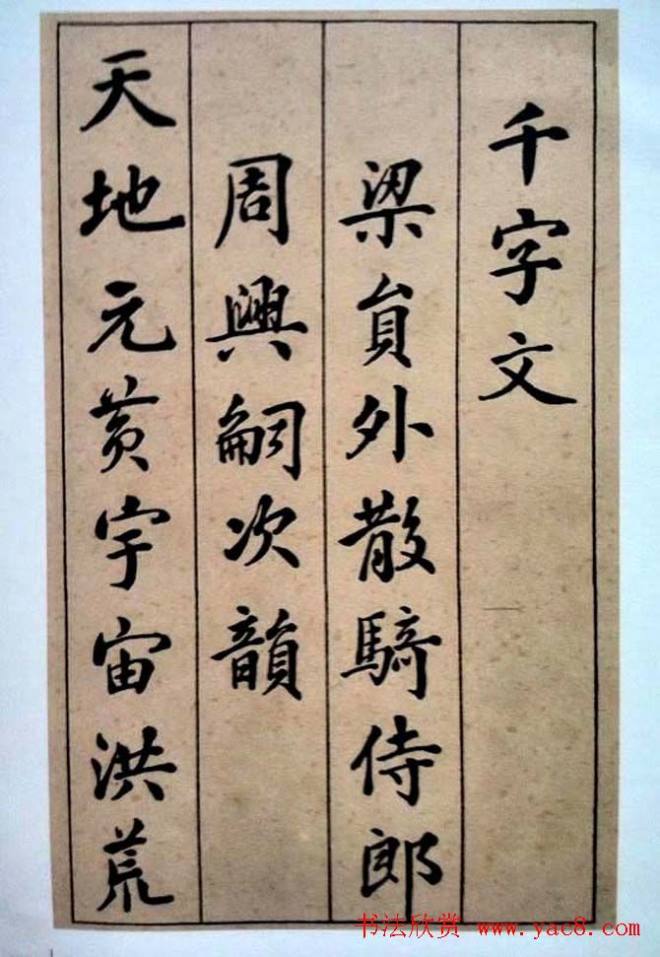 千字文
梁員外散騎侍郎
周興嗣次韻
天地元黃宇宙洪荒
书法欣赏 www.yac8.com